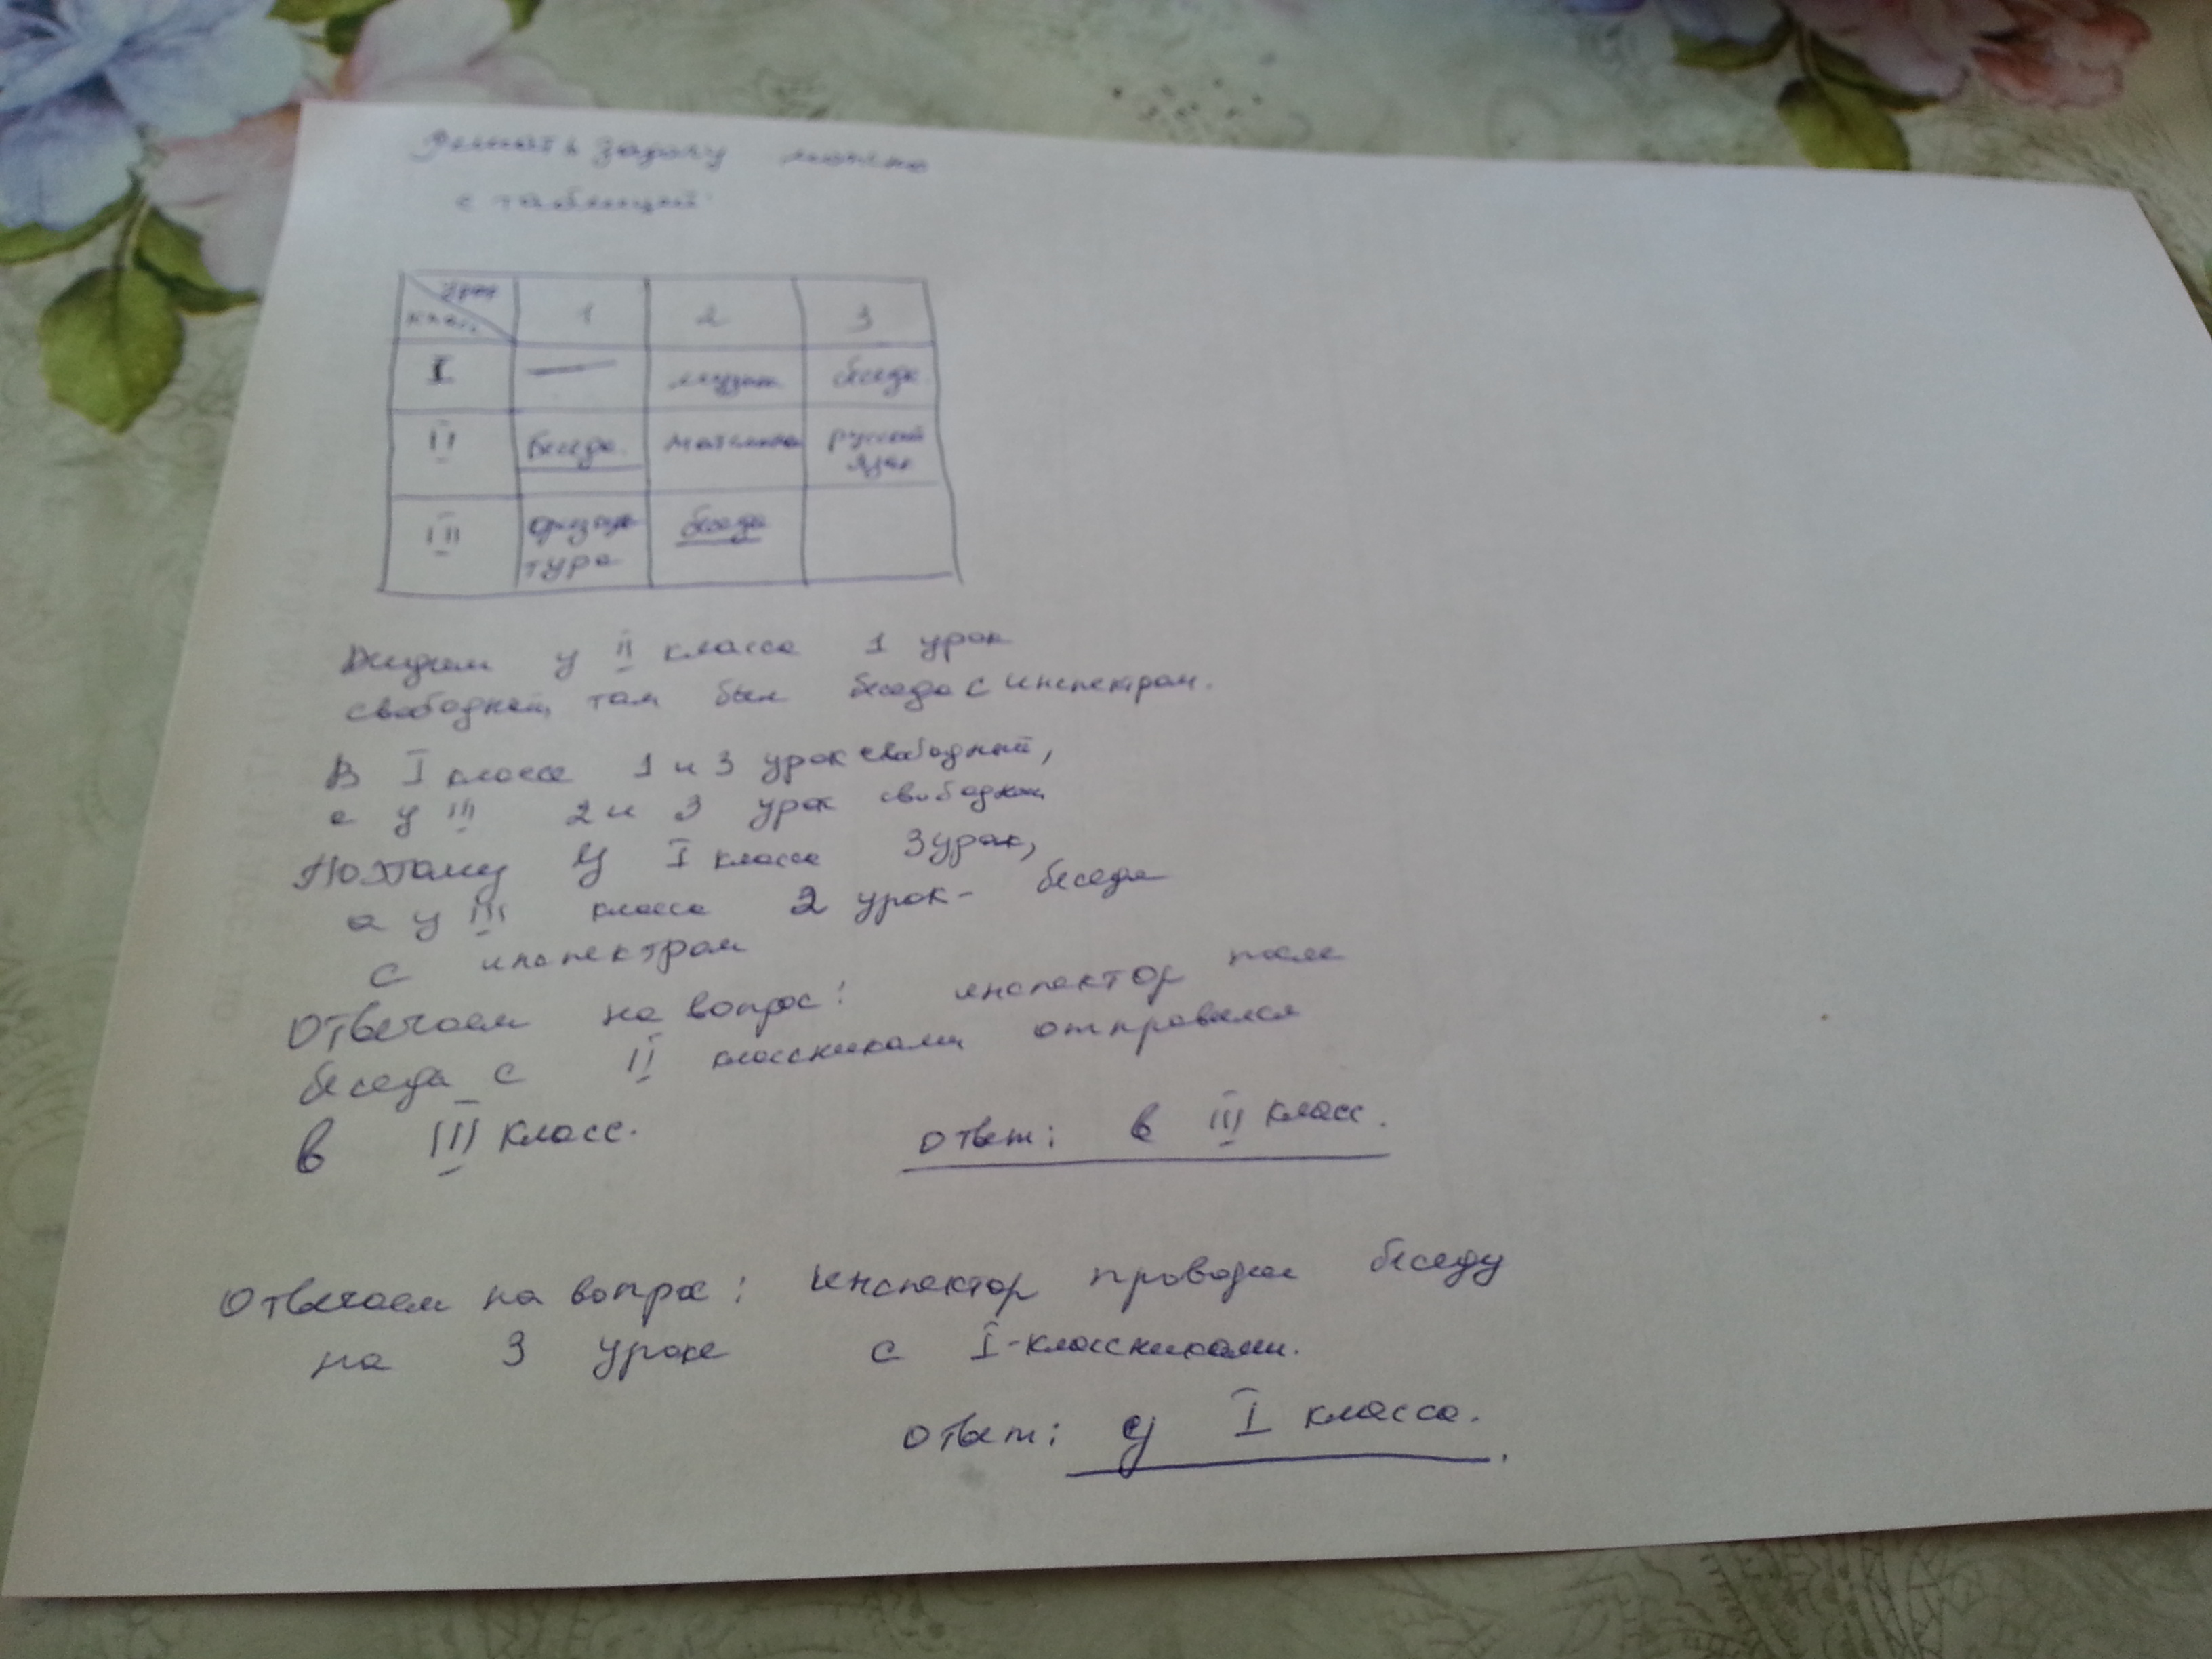 Решать задачу можно
с таблицей
урок
класс
1
2
3
I
—
музык.
беседа
II
беседа
математ
русский
язык
III
физкуль
тура
беседа
Видим у II класса 1 урок
свободный, там был беседа с инспектрам.
В I классе 1 и 3 урок свободный,
а у III 2 и 3 урок свободный
Поэтому У I класса 3 урок,
а у III класса 2 урок - беседа
с инспектрам
Отвечаем на вопрос: инспектор после
беседа с II классниками отправился
в III класс.
Ответ: в III класс.
Отвечаем на вопрос: инспектор проводил беседу
на 3 уроке с I-классниками.
Ответ: у I класса.